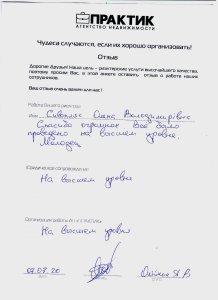 ПРАКТИК
АГЕНТСТВО НЕДВИЖИМОСТИ
Чудеса случаются, если их хорошо организовать!
Отзыв
Дорогие друзья! Наша цель - риэлтерские услуги высочайшего качества,
поэтому просим Вас, в этой анкете оставить отзыв о работе наших
сотрудников.
Ваш отзыв очень важен для нас!
Работа Вашего риэлтора:
Имя Олена Володимирівна
Спасибо огромное все было
проведено на высшем уровне.
Молодец
Юридическое сопровождение:
На высшем уровне
Организация работы АН «ПРАКТИК»:
На высшем уровне